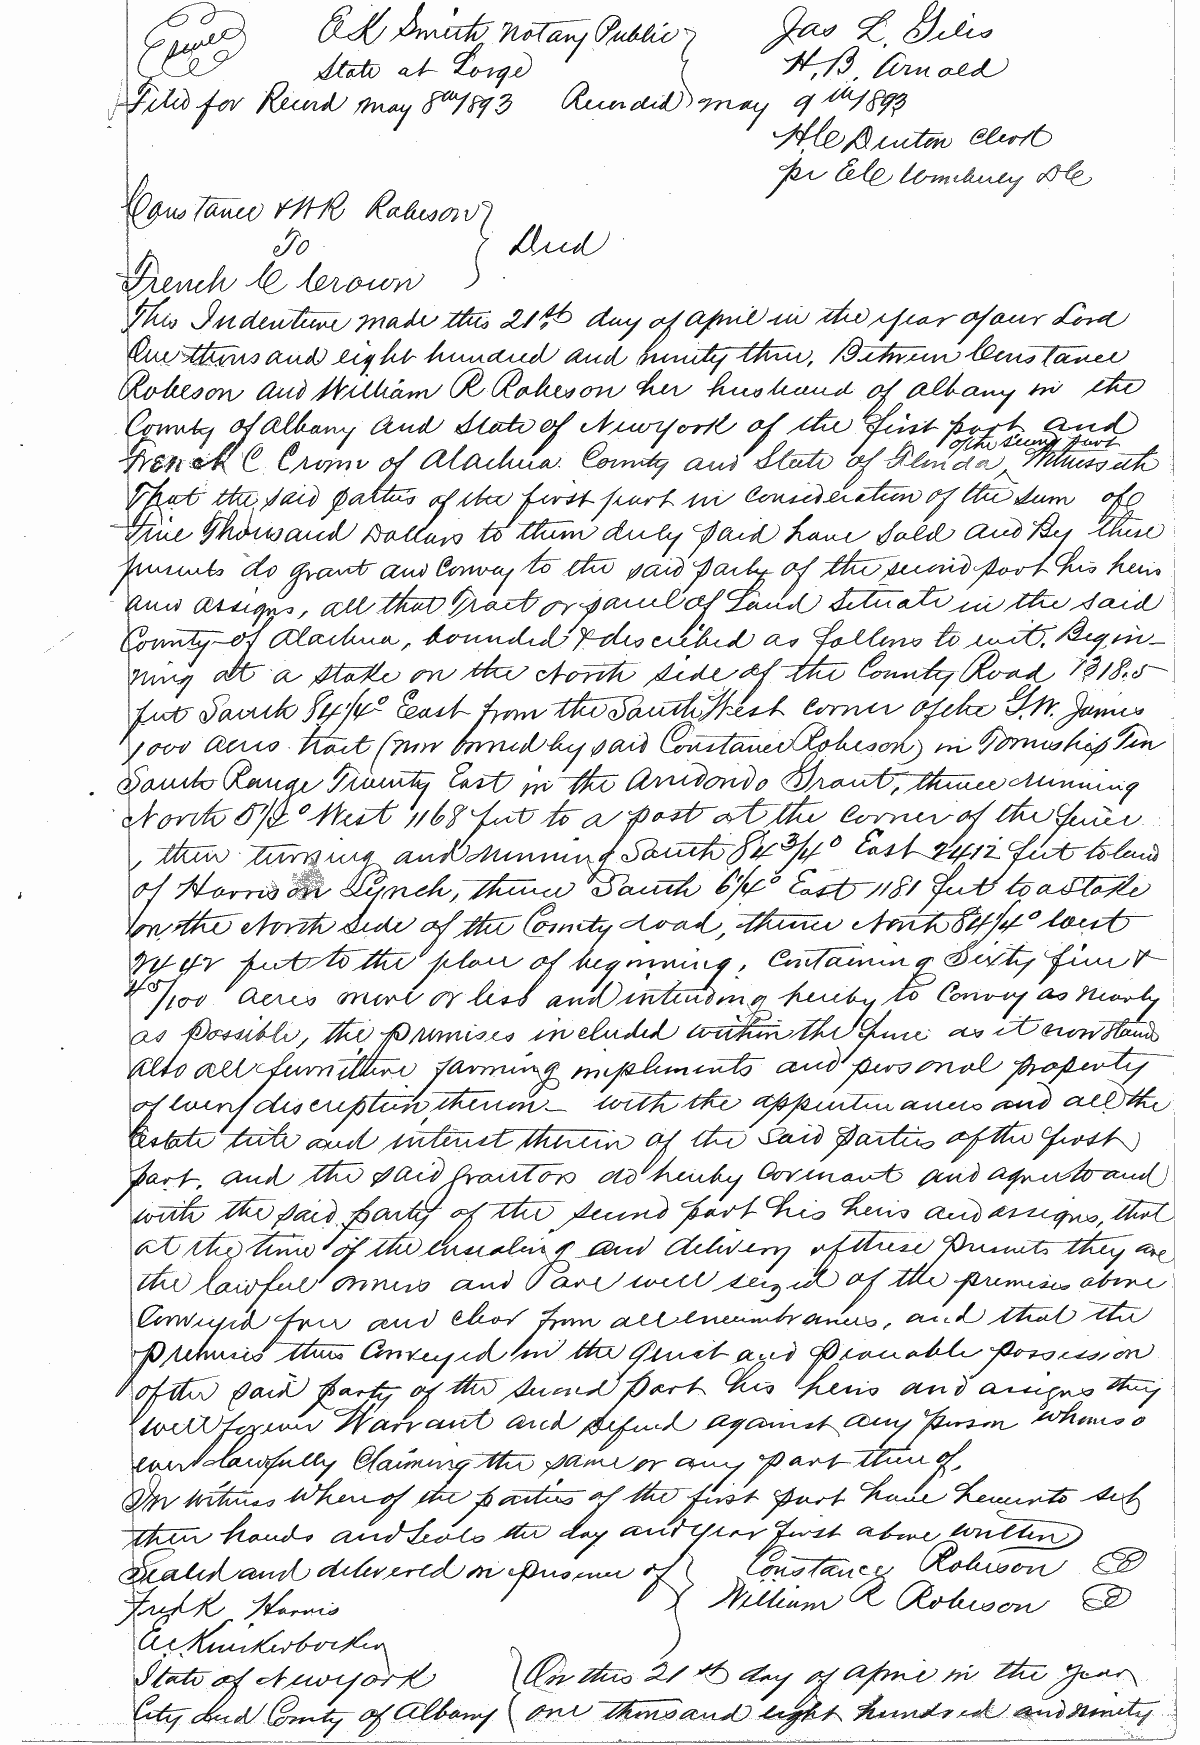 E K Smith Notary Public } Jas L. Giles
State at Large H. B. Arnold
Filed for Record May 8th 1893 Recorded May 9th 1893
H C Denton Clerk
pr E C DC
Constance & W R Robeson
To } Deed
French C Crown
This Indenture made this 21st day of April in the year of our Lord
One thousand eight hundred and ninety three, Between Constance
Robeson and William R Robeson her husband of Albany in the
County of Albany and State of New york of the first part and
of the second part
French C Crown of Alachua County and State of Florida, Witnesseth
That the said parties of the first part in consideration of the sum of
Five Thousand Dollars to them duly paid have sold and By these
presents do grant and Convey to the said party of the second part his heirs
and assigns, all that Tract or parcel of Land situate in the said
County of Alachua, bounded & described as follows to wit. Begin-
ning at a stake on the North side of the County Road 1318.5
feet South 84 1/4° East from the South West corner of the G. W. James
1000 acres tract (now owned by said Constance Robeson) in Township Ten
South Range Twenty East in the Arredondo Grant, thence running
North 5 1/2° West 1168 feet to a post at the corner of the fence
, then turning and running South 84 3/4° East 2412 feet to land
of Harrison Lynch, thence South 6 1/4° East 1181 feet to a Stake
on the North side of the County road, thence North 84 1/4° west
2442 feet to the place of beginning, Containing Sixty five &
45/100 acres more or less and intending hereby to Convey as nearly
as possible, the premises included within the fence as it now stands
also all furniture farming implements and personal property
of every discription thereon— with the appurtenances and all the
Estate title and interest therein of the said parties of the first
part. and the said grantors do hereby Covenant and agree to and
with the said party of the second part his heirs and assigns, that
at the time of the ensealing and delivery of these presents they are
the lawful owners and are well seized of the premises above
Conveyed free and clear from all encumbrances, and that the
premises thus Conveyed in the quiet and peaceable possession
of the said party of the second part his heirs and assigns they
will forever Warrant and defend against any person whomso
ever lawfully Claiming the same or any part thereof.
In witness Whereof the parties of the first part have hereunto set
their hands and Seals the day and year first above written
Sealed and delivered in presence of } Constance Robeson
Fredk Harris William R Robeson
E. Knickerbocker
State of New york } On this 21st day of April in the year
City and County of Albany one thousand eight hundred and ninety